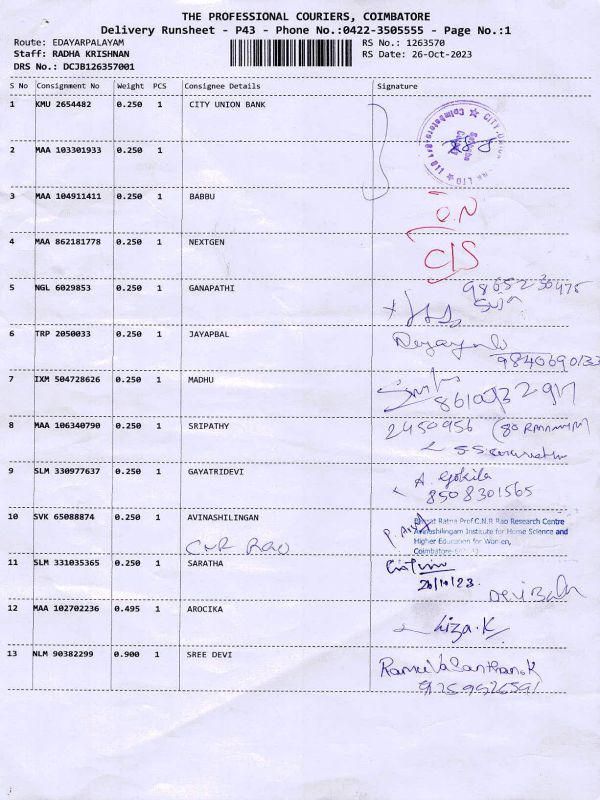 THE PROFESSIONAL COURIERS, COIMBATORE
Delivery Runsheet - P43 - Phone No.:0422-3505555 - Page No.:1
Route: EDAYARPALAYAM RS No.: 1263570
Staff: RADHA KRISHNAN RS Date: 26-Oct-2023
DRS No.: DCJB126357001
S No Consignment No Weight PCS Consignee Details Signature
1 KMU 2654482 0.250 1 CITY UNION BANK
2 MAA 103301933 0.250 1
3 MAA 104911411 0.250 1 BABBU
O.N
4 MAA 862181778 0.250 1 NEXTGEN
C/S
5 NGL 6029853 0.250 1 GANAPATHI
6 TRP 2050033 0.250 1 JAYAPBAL
9840690133
7 IXM 504728626 0.250 1 MADHU
8 MAA 106340790 0.250 1 SRIPATHY 2450956
9 SLM 330977637 0.250 1 GAYATRIDEVI
A. Gokila
8508301565
10 SVK 65088874 0.250 1 AVINASHILINGAN
Bharat Ratna Prof.C.N.R Rao Research Centre
Avinashilingam Institute for Home Science and
Higher Education for Women,
Coimbatore
CNR RAO
11 SLM 331035365 0.250 1 SARATHA
26/10/23.
12 MAA 102702236 0.495 1 AROCIKA
Liza.K
13 NLM 90382299 0.900 1 SREE DEVI